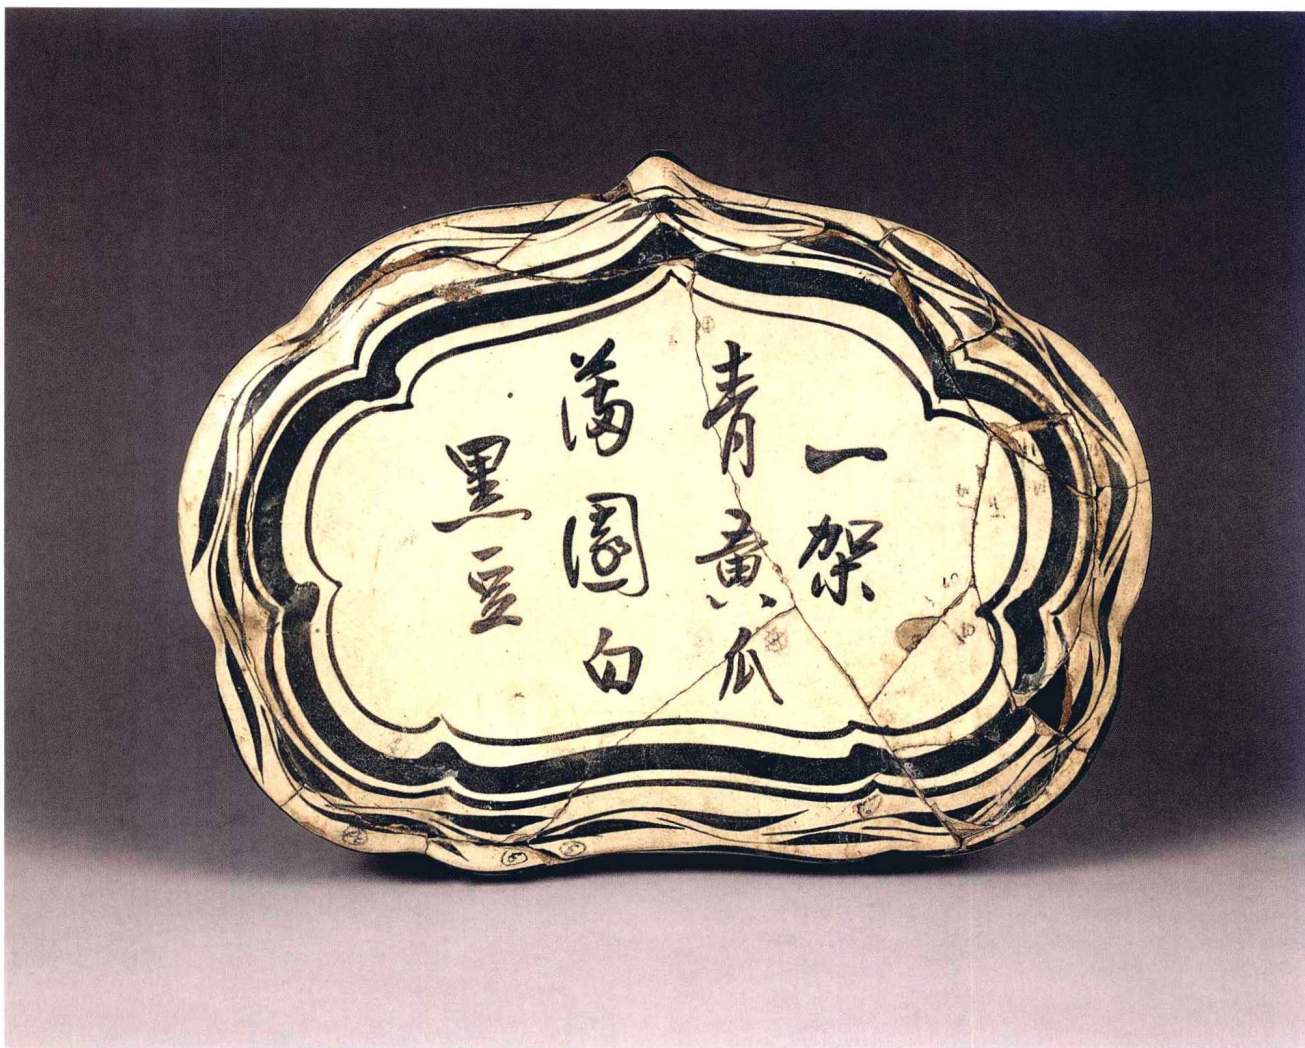 一架
青黄瓜
满園白
黑豆